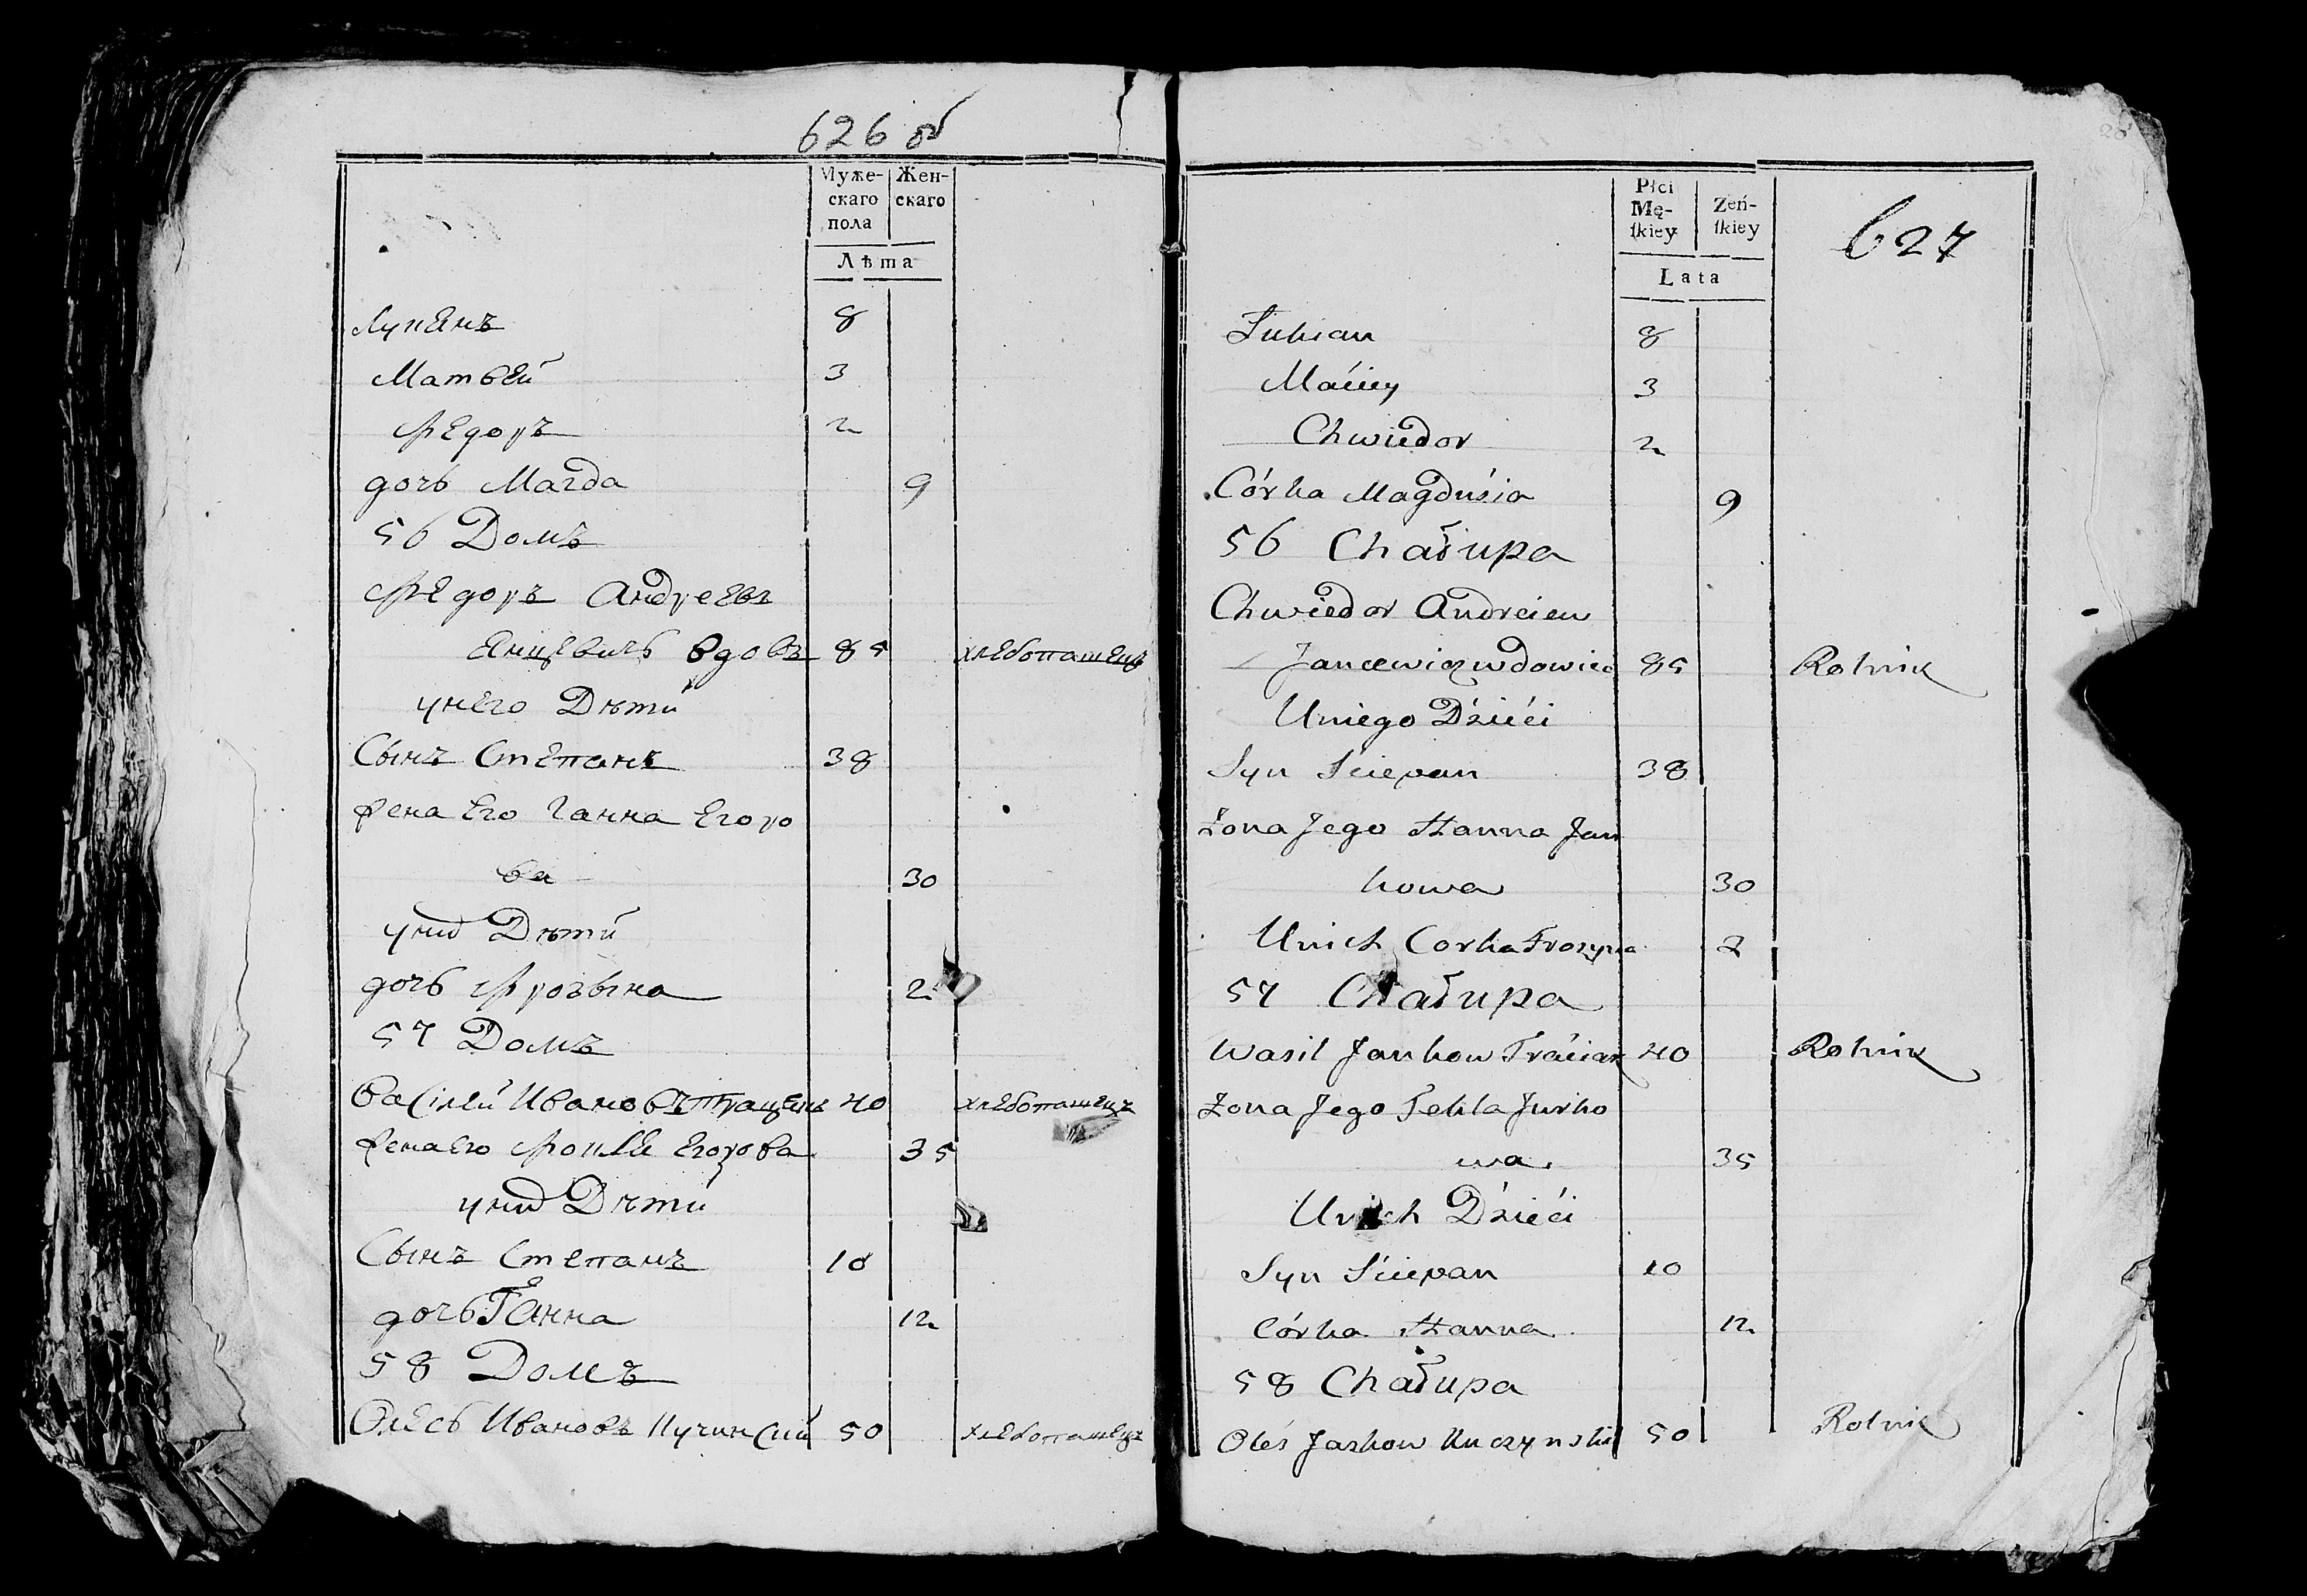 626 об
Муже-
скаго
пола
Жен-
скаго
Лѣта
Лукянъ 8
Матвей 3
Федоръ 2
дочь Магда 9
56 Домъ
Федоръ Андреевъ
Янцевичь вдовъ 85 хлебопашецъ
унего Дѣти
Сынъ Степанъ 38
жена Его Ганна Егоро
ва 30
уних Дѣти
дочь Фрозына 2
57 Домъ
Василей Ивановъ Трацяк 40 хлебопашецъ
жена Его Егорова 35
уних Дѣти
Сынъ Степанъ 10
дочь Ганна 12
58 Домъ
Олесь Ивановъ Кучинский 50 хлебопашецъ
Płci
Mę-
ſkiey
Zeń-
ſkiey
Lata
627
Łukian 8
Maciey 3
Chwiedor 2
Córka Magdusia 9
56 Chałupa
Chwiedor Andreiew
Jancewicz wdowiec 85 Rolnik
Uniego Dzieci
Syn Sciepan 38
Żona Jego Hanna Jur
kowa 30
Unich Corka Frozyna 2
57 Chałupa
Wasil Jankow Traciak 40 Rolnik
Zona Jego Tekla Jurko
wa 35
Unich Dzieci
Syn Sciepan 10
Córka Hanna 12
58 Chałupa
Oleś Jaskow Kuczynski 50 Rolnik